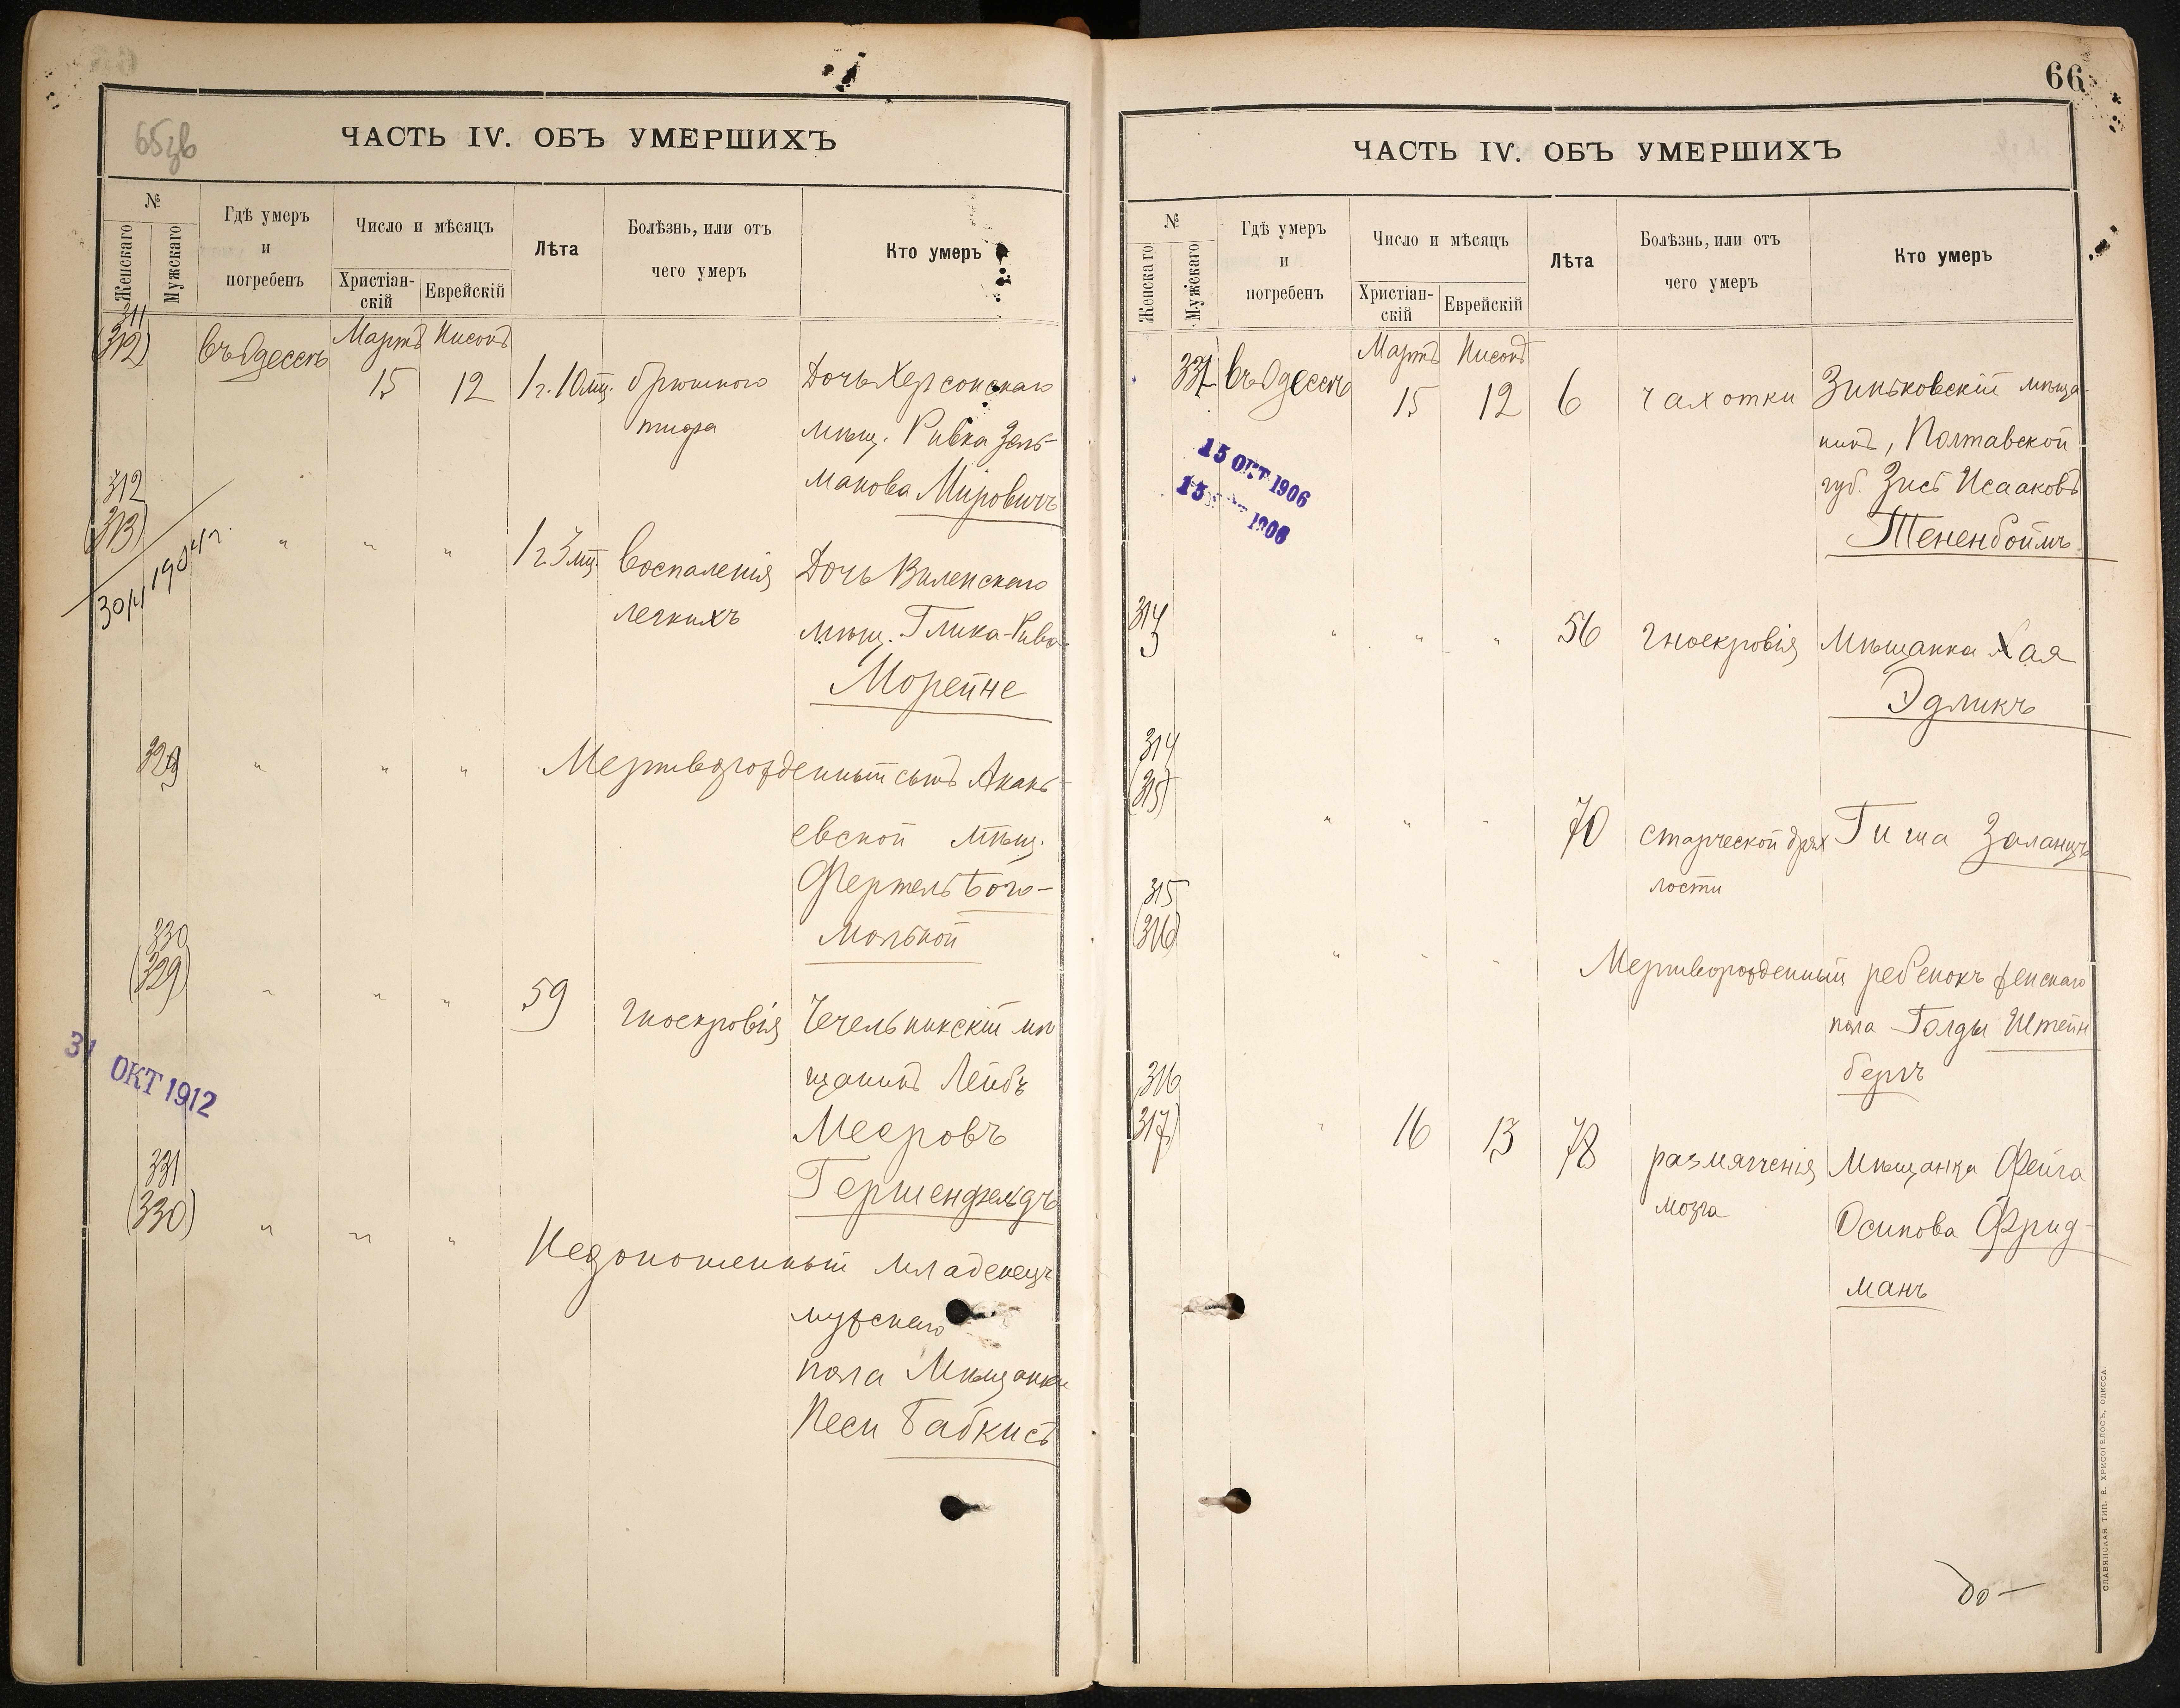 65зв
ЧАСТЬ IV. ОБЪ УМЕРШИХЪ
№
Женскаго
Мужскаго
Гдѣ умеръ
и
погребенъ
Число и мѣсяцъ
Христіан-
скій
Еврейскій
Лѣта
Болѣзнь, или отъ
чего умеръ
Кто умеръ
311
(312)
въ Одессѣ
Мартъ
15
Нисонъ
12
1 г. 10 мѣ.
брюшного
тифа
Дочь Херсонскаго
мѣщ. Ривка Зель-
манова Мировичъ
312
(313)
30/4 1904 г.
" " "
1 г. 3 мѣ.
воспаленія
легкихъ
Дочь Виленскаго
мѣщ. Глика-Ривка
Морейне
329
" " "
Мертворожденный сынъ Анань-
евской мѣщ.
Фертель Бого-
мольной
330
(329)
" " "
59
гноекровія
Чечельникскій мѣ
щанинъ Лейбъ
Мееровъ
Гершенфельдъ
31 ОКТ 1912
331
(330)
" " "
Недоношенный младенецъ
мужскаго
пола Мѣщанки
Песи Бабкисъ
66
ЧАСТЬ IV. ОБЪ УМЕРШИХЪ
№
Женскаго
Мужскаго
Гдѣ умеръ
и
погребенъ
Число и мѣсяцъ
Христіан-
скій
Еврейскій
Лѣта
Болѣзнь, или отъ
чего умеръ
Кто умеръ
331
въ Одессѣ
Мартъ
15
Нисонъ
12
6
чахотки
Зиньковскій мѣща-
нинъ, Полтавской
губ. Зусъ Исааковъ
Тененбоймъ
15 ОКТ 1906
15 1906
314
3
" " "
56
гноекровія
Мѣщанка Хая
Эдликъ
314
(315)
" " "
70
старческой дрях
лости
Гиша Заланцъ
315
(316)
" " "
Мертворожденный ребенокъ женскаго
пола Голды Штейн
бергъ
316
(317)
"
16
13
78
размягченія
мозга
Мѣщанка Фейга
Осипова Фрид-
манъ
СЛАВЯНСКАЯ ТИП. Е. ХРИСОГЕЛОСЪ, ОДЕССА.